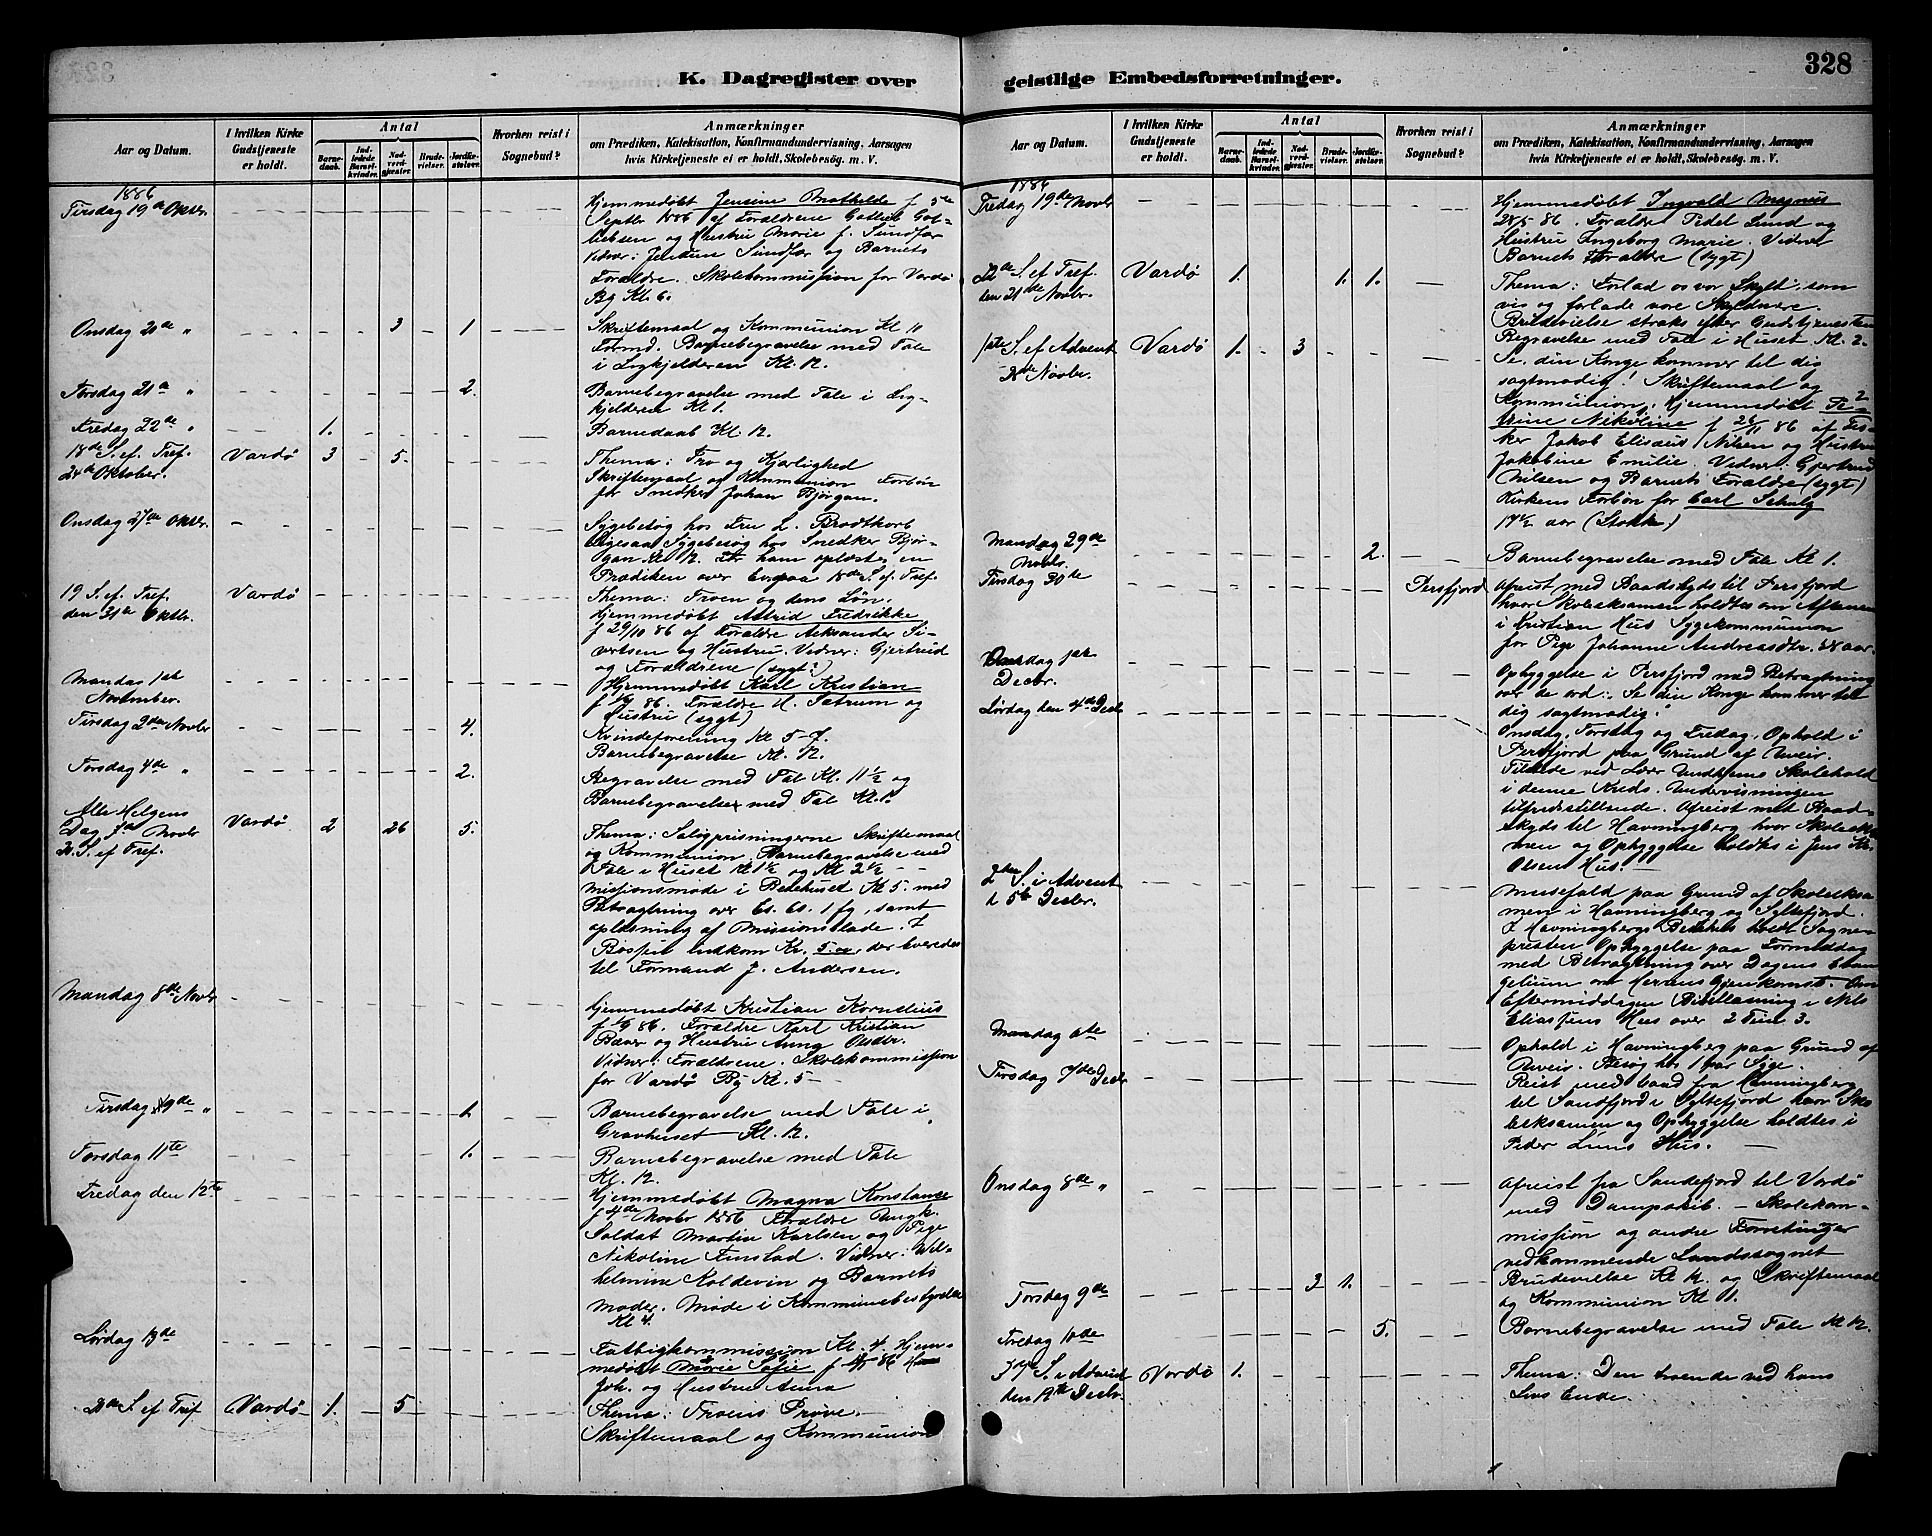 328
K. Dagregister over geistlige Embedsforretninger.
Aar og Datum.
I hvilken Kirke Gudstjeneste er holdt.
Antal
Barnedaab.
Indledede Barselkvinder.
Nadverdgjester.
Brudevielser.
Jordfæstelser.
Hvorhen reist i Sognebud?
Anmærkninger
om Prædiken, Katekisation, Konfirmandundervisning, Aarsagen
hvis Kirketjeneste ei er holdt, Skolebesøg. m. V.
1886
Tirsdag 19de Oktbr.
Hjemmedøbt Jensine Mathilde f 5te
Septbr 1886 af Forældrene Gottlieb Got-
liebsen og Hustru Marie f. Sundfær
Vidner: Jensine Sundfær og Barnets
Forældre. Skolekommission for Vardø
By Kl. 6.
Onsdag 20de " 3 1
Skriftemaal og Kommunion Kl 11
Formd. Barnebegravelse med Tale
i Ligkjelderen Kl. 12.
Torsdag 21de " 2.
Barnebegravelse med Tale i Lig-
kjelderen Kl 1.
Fredag 22de " 1.
Barnedaab Kl. 12.
18de S. ef. Tref. Vardø 3 5.
24de Oktober.
Thema: Tro og Kjærlighed
Skriftemaal og Kommunion Forbøn
for Snedker Johan Bjørgan.
Onsdag 27de Oktbr.
Sygebesøg hos Fru L. Brodtkorb
Ligesaa Sygebesøg hos Snedker Bjør-
gan Kl 12. For ham oplæstes en
Prædiken over Evg. paa 18de S. ef. Tref.
19 S. ef. Tref. Vardø
den 31te Oktbr.
Thema: Troen og dens Løn.
Hjemmedøbt Astrid Fredrikke
f 29/10 86 af Forældre Aleksander Si-
vertsen og Hustru. Vidner: Gjertrud
og Forældrene (sygt?)
Mandag 1ste
November.
Hjemmedøbt Karl Kristian
Forældre
Hustru (sygt)
Tirsdag 2den Novbr 4.
Kvindeforening Kl 5-7.
Barnebegravelse Kl. 12.
Torsdag 4de " 2.
Begravelse med Tale Kl. 11½ og
Barnebegravelse med Tale Kl. 1.
Alle Helgens
Dag 7de Novbr Vardø 2 26 5.
20. S. ef Tref.
Thema: Saligprisningerne Skriftemaal
og Kommunion. Barnebegravelse med
Tale i Huset Kl 1½ og Kl 2½ -
Missionsmøde i Bedehuset Kl 5. med
Betragtning over Es. 60. 1 fg, samt
oplæsning af Missionsblade. I
Bøssen indkom Kr. 5.00 der leveredes
til Formand J. Andersen.
Mandag 8de Novbr
Hjemmedøbt Kristian Kornelius
Forældre Karl Kristian
og Hustru Anna Olsdtr.
Vidner: Forældrene. Skolekommission
for Vardø By Kl. 5 -
Tirsdag 9de " 1.
Barnebegravelse med Tale i
Gravhuset Kl. 12.
Torsdag 11te 1.
Barnebegravelse med Tale
Kl. 12.
Fredag den 12te
Hjemmedøbt Magna Konstanse
f 4de Novbr 1886 Forældre Ungk.
Soldat Martin Karlsen og Pige
Nikoline Finstad. Vidner: Wil-
helmine Koldevin og Barnets
Moder. Møde i Kommunebestyrelse
Kl 4.
Lørdag 13de
Fattigkommission Kl. 4. Hjem-
medøbt Marie Sofie
Joh. og Hustru Anna
S. ef Tref Vardø 1. 5
Thema: Troens Prøve -
Skriftemaal og Kommunion
Aar og Datum.
I hvilken Kirke Gudstjeneste er holdt.
Antal
Barnedaab.
Indledede Barselkvinder.
Nadverdgjester.
Brudevielser.
Jordfæstelser.
Hvorhen reist i Sognebud?
Anmærkninger
om Prædiken, Katekisation, Konfirmandundervisning, Aarsagen
hvis Kirketjeneste ei er holdt, Skolebesøg. m. V.
1886
Fredag 19de Novbr
Hjemmedøbt Ingvald Magnus
Forældre Peder Lund og
Hustru Ingeborg Marie. Vidner
Barnets Forældre (sygt)
22de S. ef Tref. Vardø 1. 1. 1.
den 21de Novbr.
Thema: Forlad os vor Skyld, som
vi og forlade vore Skyldnere
Brudevielse straks efter Gudstjenesten
Begravelse med Tale i Huset Kl. 2.
1ste S. ef Advent Vardø 1. 3
28de Novbr.
Se, din Konge kommer til dig
sagtmodig! Skriftemaal og
Kommunion. Hjemmedøbt
Nikoline f 86 af Fis-
ker Jakob Elisæus Nilsen og Hustru
Jakobine Emilie. Vidner: Gjertrud
Nilsen og Barnets Forældre (sygt)
Kirkens Forbøn for Carl Schulz
17½ aar
Mandag 29de 2.
Novbr.
Barnebegravelse med Tale Kl 1.
Tirsdag 30te Persfjord
Afreist med Baadskyds til Persfjord
hvor Skoleeksamen holdtes om Aftenen
i Kristian Hus Sygekommunion
for Pige Johanne Andreasdtr. aar.
Onsdag 1ste
Decbr.
Opbyggelse i Persfjord med Betragtning
over de ord: Se din Konge kommer til
dig sagtmodig.
Lørdag den 4de Decbr
Onsdag, Torsdag og Fredag. Ophold i
Persfjord paa Grund af Uveir.
Tilstede ved Lærer Skolehold
i denne Kreds. Undervisningen
tilfredsstillende. Afreist med Baad-
skyds til Havningberg hvor Skoleeksa-
men og Opbyggelse holdtes i Jens Kr.
Olsens Hus. -
2den S. i Advent
d 5te Decbr.
Messefald paa Grund af Skoleeksa-
men i Havningberg og Syltefjord.
I Havningbergs Bedehus holdt Sogne-
presten Opbyggelse paa Formiddag
med Betragtning over Dagens Evan-
gelium om Herrens Gjenkomst. Om
Eftermiddagen Bibellæsning i Nils
Eliassens Hus over 2 Tim 3.
Mandag 6te
Ophold i Havningberg paa Grund af
Uveir. Besøg hos 1 par Syge.
Tirsdag 7de Decbr
Reist med baad fra Havningberg
til Sandfjord i Syltefjord hvor Sko-
leeksamen og Opbyggelse holdtes i
Peder Hus. -
Onsdag 8de "
Afreist fra Sandfjord til Vardø
med Dampskib. - Skolekom-
mission og andre Forretninger
vedkommende Landssognet
Torsdag 9de 3 1.
Brudevielse Kl 12. og Skriftemaal
og Kommunion Kl 1.
Fredag 10de 5.
Barnebegravelse med Tale Kl 12.
3die S. i Advent Vardø 1.
den 12te Decbr.
Thema: Den troende ved hans
Livs Ende.